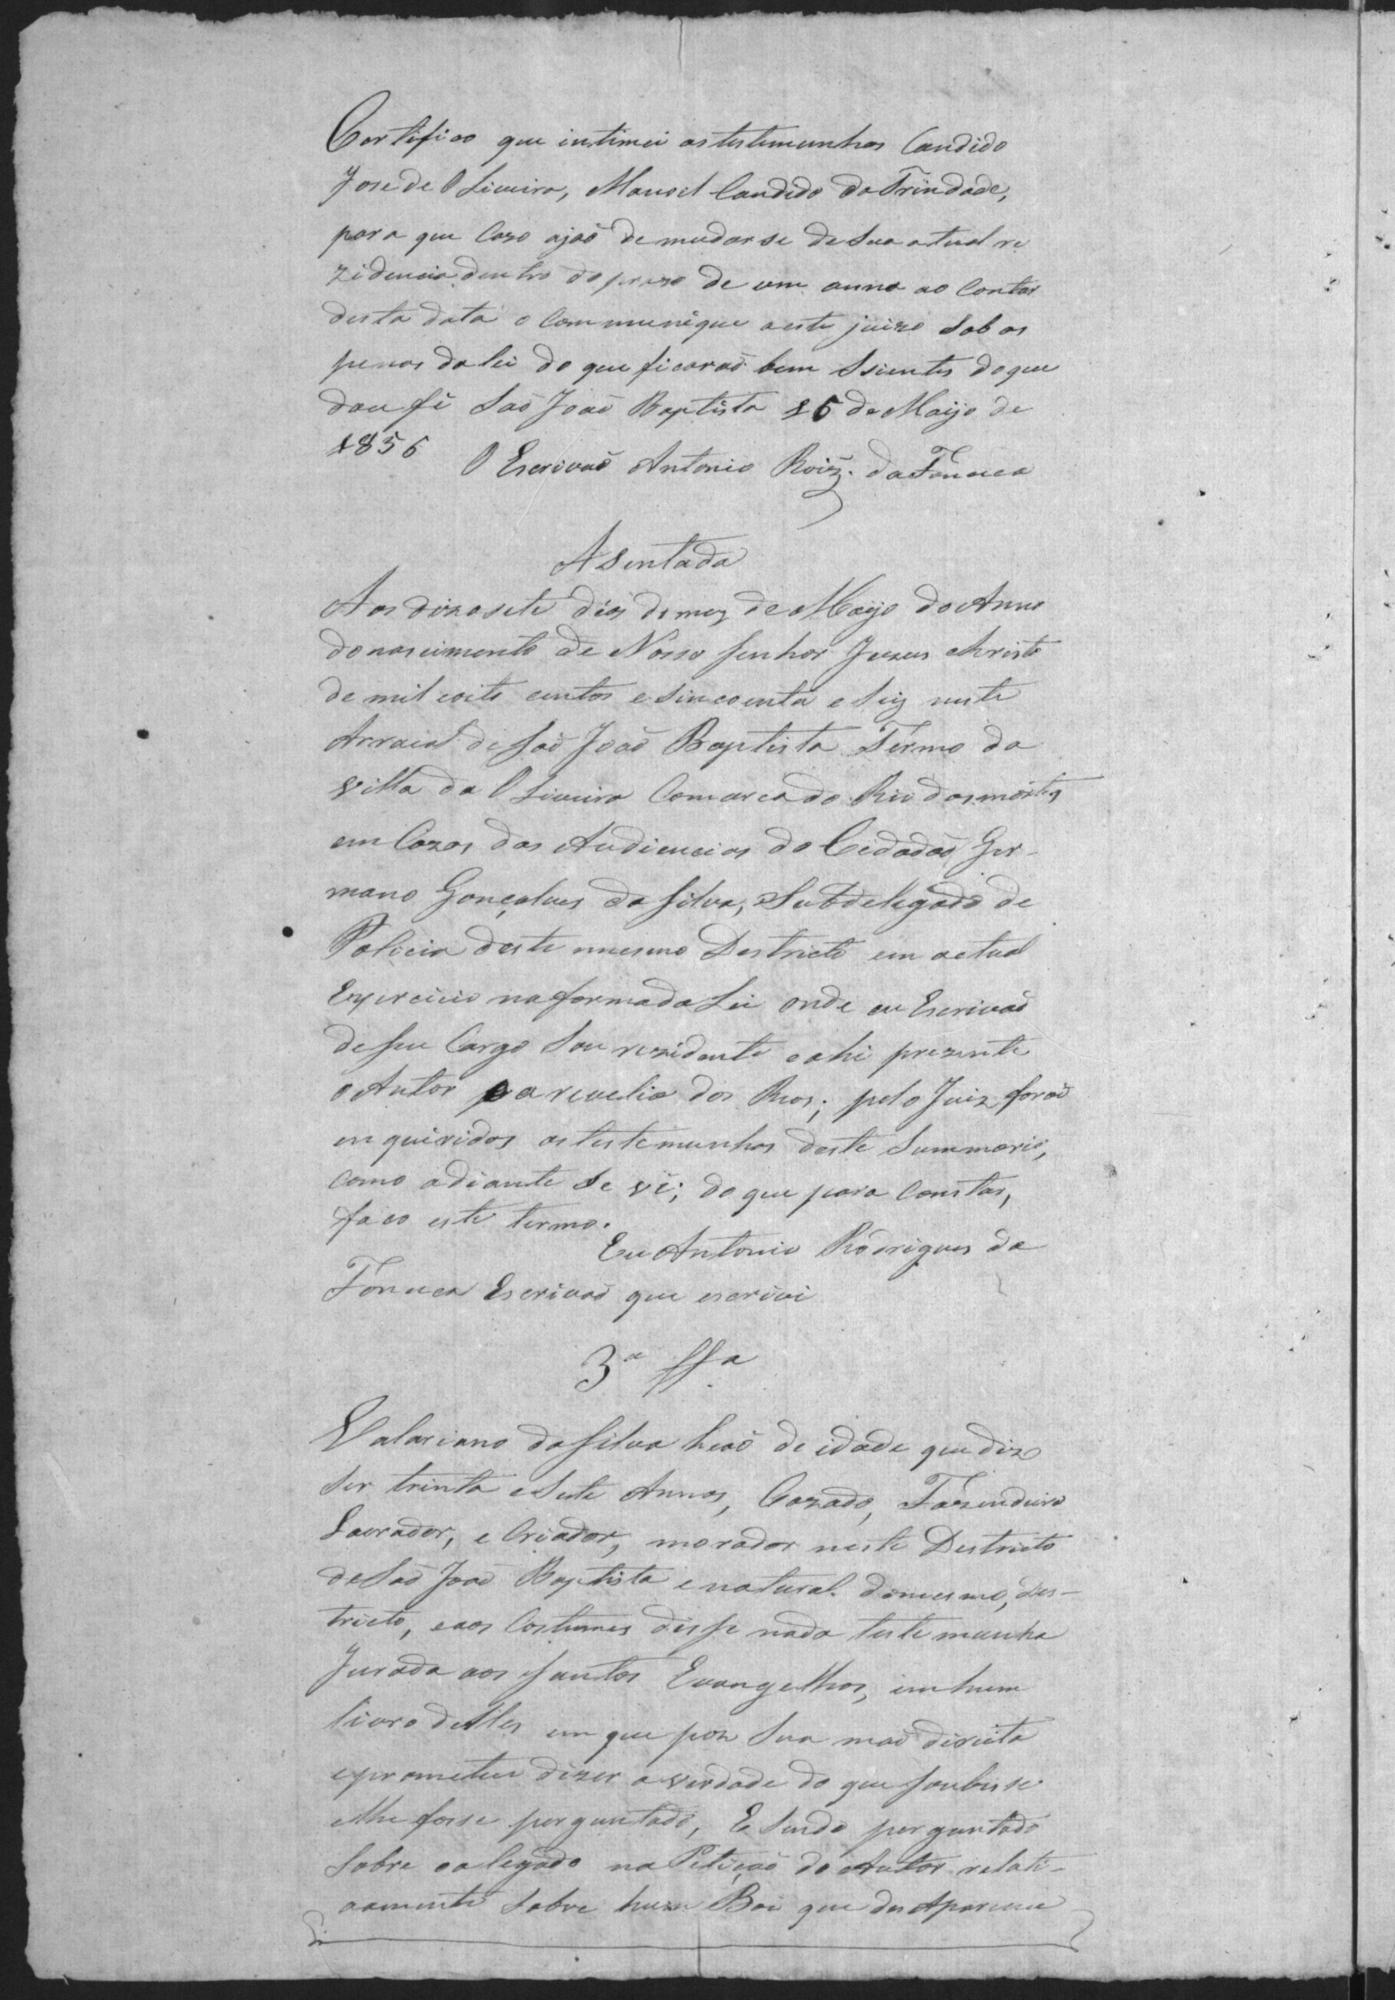 Certifico que intimei as testimunhas Candido
Jose de Oliveira, Manoel Candido da Trindade,
para que Cazo ajaõ de mudarse de sua atual re
zidencia dentro do prazo de um anno ao Contar
desta data o Communique a este juizo sob as
penas da lei do que ficaraõ bem Scientes do que
dou fé Saõ Joaõ Baptista 16 de Maijo de
1856 O Escrivaõ Antonio Roiz. da Fonceca
Asentada
Aos dizasete dias do mez de Maijo do Anno
do nascimento de Nosso Senhor Jezus Christo
de mil oito centos e sincoenta e seis neste
Arraial de Saõ Joaõ Baptista Termo da
Villa da Oliveira Comarca do Rio das mortes
em Cazas das Audiencias do Cidadaõ Ger-
mano Gonçalves da Silva, Subdelegado de
Policia deste mesmo Destricto em actual
Exercicio na forma da Lei onde eu Escrivaõ
de seu Cargo Sou rezidente e ahi prezente
o Autor e a revelia dos Reos; pelo Juiz foraõ
enquiridos as testemunhas deste Summario,
como adiante se vê; do que para Constar,
faco este termo.
Eu Antonio Rodrigues da
Fonceca Escrivaõ que escrivi
3ª ffª
Valariano da Silva Leaõ de idade que diz
ser trinta e Sete Annos, Cazado, Fazendeiro
Lavrador, e Criador, morador neste Destricto
de Saõ Joaõ Baptista e natural do mesmo, Des-
tricto, e aos Costumes disse nada testemunha
Jurada aos Santos Evangelhos, em hum
livro delles em que poz Sua maõ direita
e prometeu dizer a verdade do que soubesse
e lhe fosse perguntado, E sendo perguntado
Sobre o alegado na Petiçaõ do Autor relati-
vamente sobre hum Boi que desApareceu